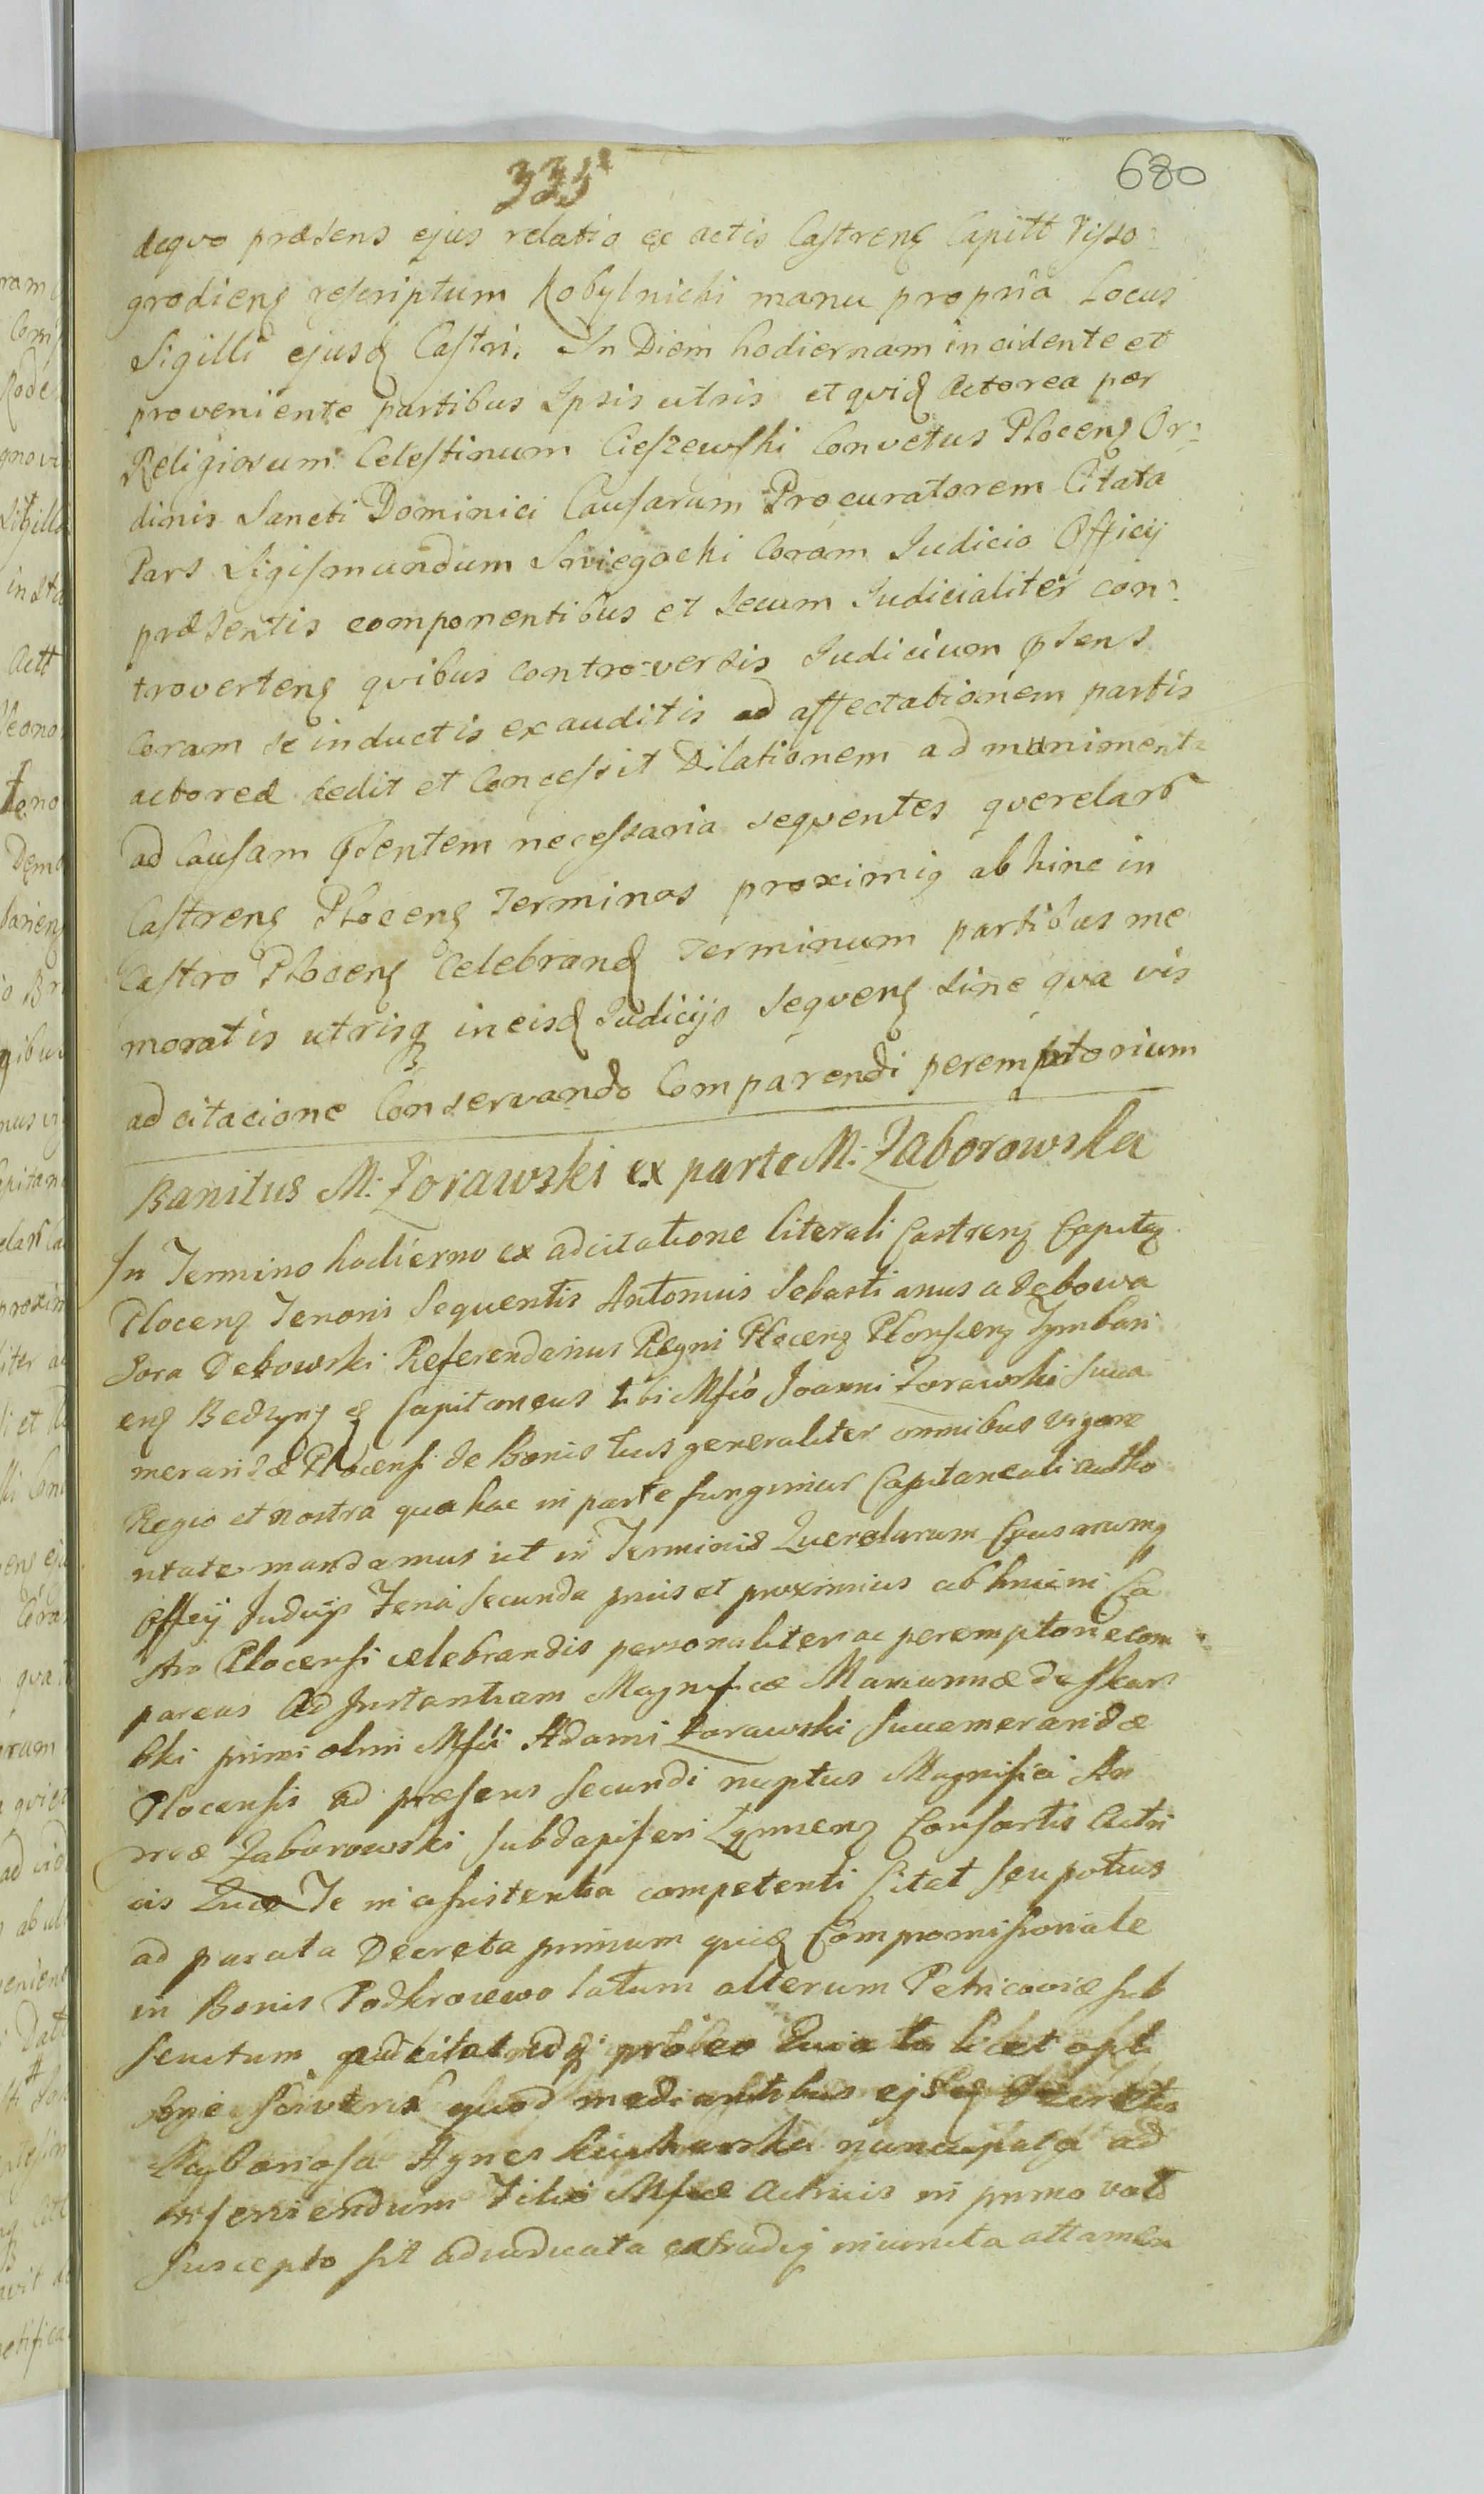 335
680
deqvo præsens ejus relatio ex actis Castrenȩ Capitt Viszo=
grodienȩ rescriptum Kobylnicki manu propria Locus
Sigilli ejusȩ Castri. In Diem hodiernam incidente et
proveniente partibus Ipsis utris et qvid Actorea per
Religiosum Celestinum Cieszewski Convetus Plocenȩ Or=
dinis Sancti Dominici Causarum Procuratorem Citata
Pars Sigismundum Smiegocki Coram Iudicio Officij
præsentis componentibus et secum Iudicialiter con=
trovertenȩ qvibus controversis Iudicium psens
Coram se inductis exauditis ad affectationem partis
actoreæ dedit et Concessit Dilationem ad muniment
ad Causam psentem necessaria seqventes qverelarb
Castrenȩ Plocenȩ Terminos proximiȩ abhinc in
Castro Plocenȩ Celebranȩ Terminum partibus me
moratis utrisq ineisȩ Iudicijs seqvenȩ sine qva vis
adcitacione Conservando Comparendi peremptorium
Banitus M: Zorawski ex parte M: Zaborowska
In Termino hodierno ex adcitatione literali Castrenȩ Capitȩ
Plocenȩ Tenoris Sequentis Antonius Sebastianus a Debowa
Gora Debowski Referendarius Regni Plocenȩ Plonscenȩ Zymbari
enȩ Bedzynȩ & Capitaneus tibi Mfco Joanni Zorawski succa
meraridæ Plocensi de Bonis tuis generaliter omnibus vigore
Regio et nostra qua hac in parte fungimur Capitaneali autho
ritate mandamus ut in Terminis Querelarum Causarumq
Officij Judicijs Feria Secunda priis et proximius abhinc in Ca
stro Plocensi celebrandis personaliter ac peremptorie com
pareas Ad Instantiam Magnificæ Mariannæ de Skar
bki primi olim Mfci Adami Zorawski succameraridæ
Plocensis ad præsens secundi nuptus Magnifici An
dreæ Zaborowski subdapiferi Zymenȩ Consortis Actri
cis Quæ Te in assistentia competenti Citat seu potius
ad parata Decreta primum quiȩ Compromissionale
in Bonis Podkrocewo latum alterum Petricoviæ sub
secutum adcitat proeo Quia tu licet opti
bne sciverisȩ quod mediantibus ejsȩ Decretis
Laboriosa Agnes nuncupata ad
inserviendum Filio Mficæ Actricis in primo voto
suscepto sit adiudicata extradiȩ iniuncta attamen